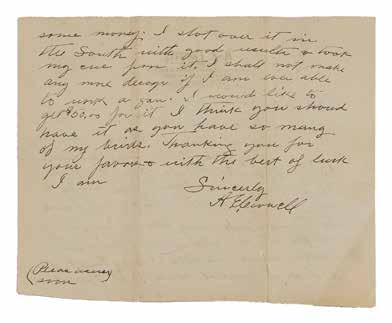 some money. I shot over it in
the South with good results & took
my cue from it. I shall not make
any more decoys if I am ever able
to work a gain. I would like to
get $50.00 for it I think you should
have it as you have so many
of my birds. Thanking you for
your favors & with the best of luck
I am
Sincerely
(Please answer
soon